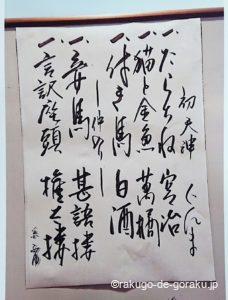 初天神 ぐんま
一、たらちね 宮治
一、猫と金魚 萬橘
一、付き馬 白酒
―仲入り―
一、妾馬 甚語楼
一、言訳座頭 権太楼
©rakugo-de-goraku.jp